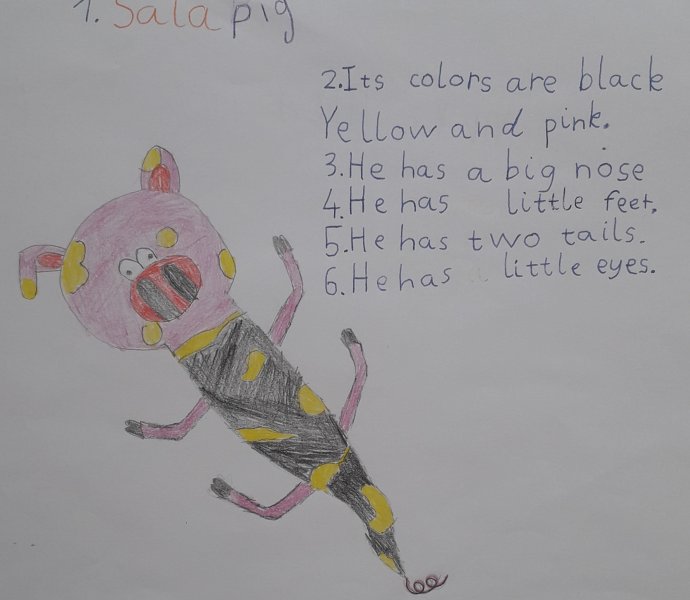 1. Sala pig
2.Its colors are black
Yellow and pink.
3.He has a big nose
4.He has little feet,
5.He has two tails.
6.He has little eyes.